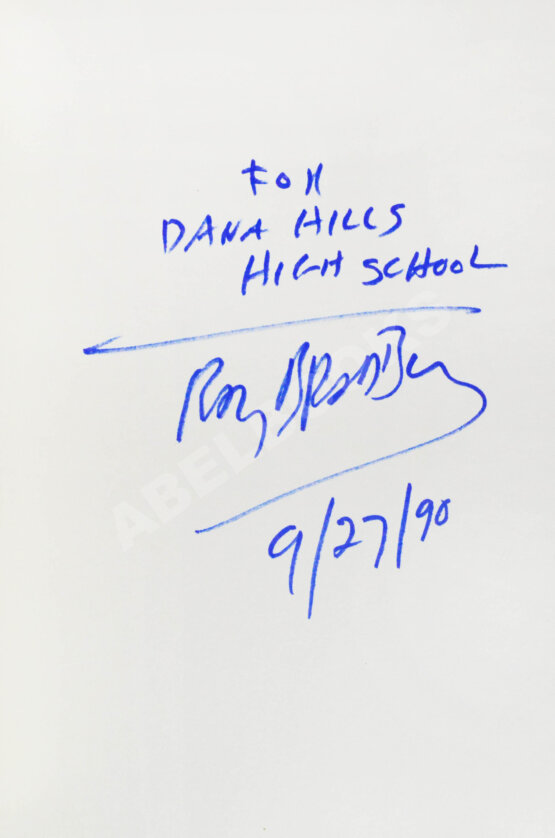 FOR
DANA HILLS
HIGH SCHOOL
Ray BRADBury
9/27/90